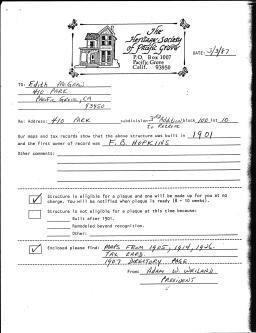 The
Heritage Society
of Pacific Grove
P.O. Box 1007
Pacific Grove
Calif. 93950
DATE: 3/3/87
TO: Edith McGraw
410 PARK
PACIFIC GROVE, CA
93950
Re: Address: 410 PARK subdivision 3rd Addition block 100 lot 10
To Retreat
Our maps and tax records show that the above structure was built in 1901
and the first owner of record was F.B. HOPKINS
Other comments:
Structure is eligible for a plaque and one will be made up for you at no
charge. You will be notified when plaque is ready (8 - 10 weeks).
Structure is not eligible for a plaque at this time because:
Built after 1901.
Remodeled beyond recognition.
Other:
Enclosed please find: MAPS FROM 1905, 1914, 1926.
TAX CARD.
1907 DIRECTORY PAGE
From: ADAM W. WEILAND
PRESIDENT